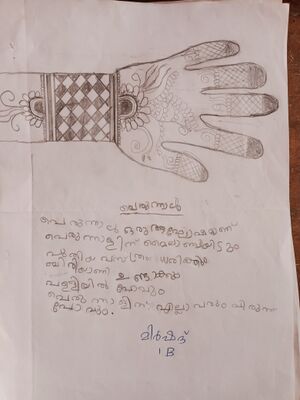 പെരുന്നാൾ
പെരുന്നാൾ ഒരു ആഘോഷമാണ്
പെരുന്നാളിന് മൈലാഞ്ചിയിടും
പുതിയ വസ്ത്രം ധരിക്കും
ബിരിയാണി ഉണ്ടാക്കും
പള്ളിയിൽ പോവും
പെരുന്നാളിന് എല്ലാവരും വിരുന്ന്
പോവും.
മിർഷദ്
1 B